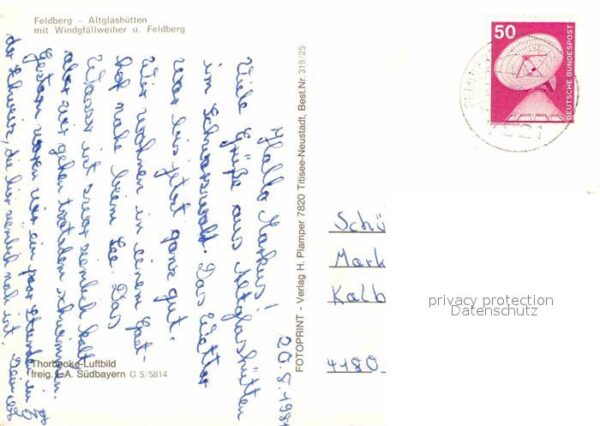 Feldberg - Altglashütten
mit Windgfällweiher u. Feldberg
20.8.198
Hallo Markus!
Viele Grüße aus Altglashütten
im Schwarzwald. Das Wetter
war bis jetzt ganz gut.
Wir wohnen in einem Gast-
hof nahe beim See. Das
Wasser ist zwar ziemlich kalt
aber wir gehen trotzdem schwimmen.
Gestern waren wir ein paar Stunden in
der Schweiz, die hier ziemlich nah ist. Dein
Thorbecke-Luftbild
freig. A. Südbayern G 5/5814
FOTOPRINT - Verlag H. Plamper 7820 Titisee-Neustadt, Best.Nr. 319/25
50
DEUTSCHE BUNDESPOST
Schü
Mark
Kalb
4180-
privacy protection
Datenschutz